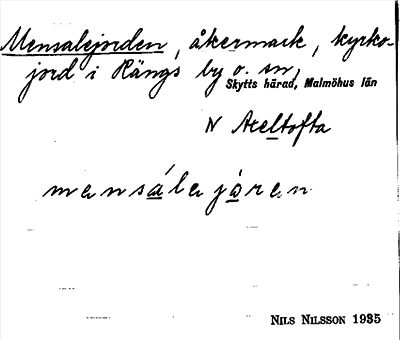 Mensalejorden, åkermark, kyrko-
jord i Rängs by o. sn,
Skytts härad, Malmöhus län
N Axeltofta
mensálejǫren
NILS NILSSON 1935